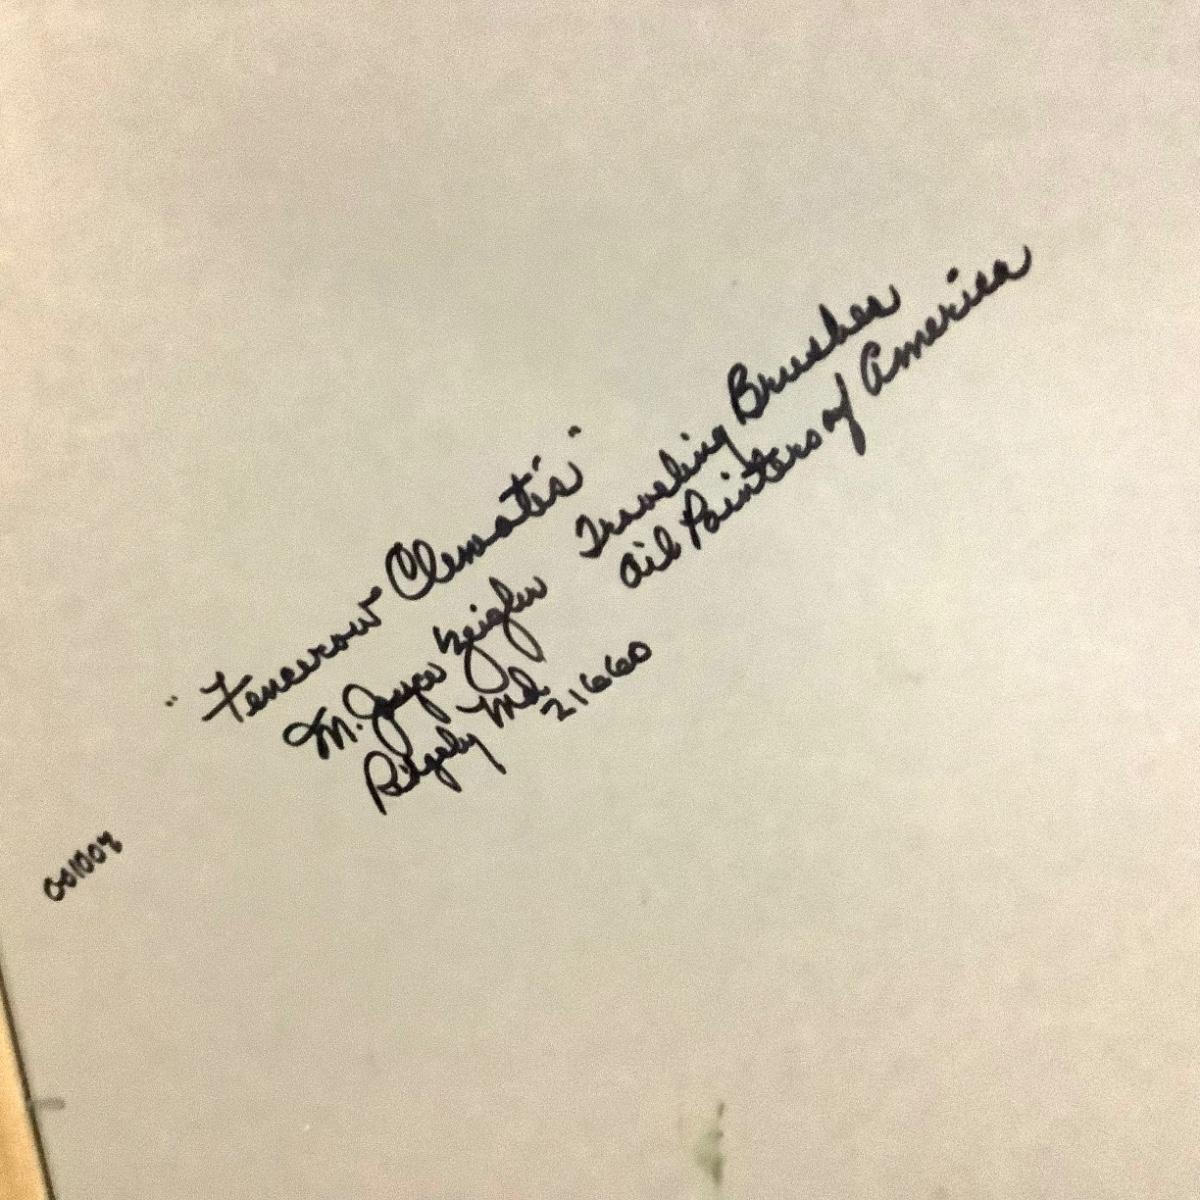 "Fencerow Clematis"
M. Joyce Zeigler
Ridgely Md.
21660
Traveling Brushes
Oil Painters of America
001008